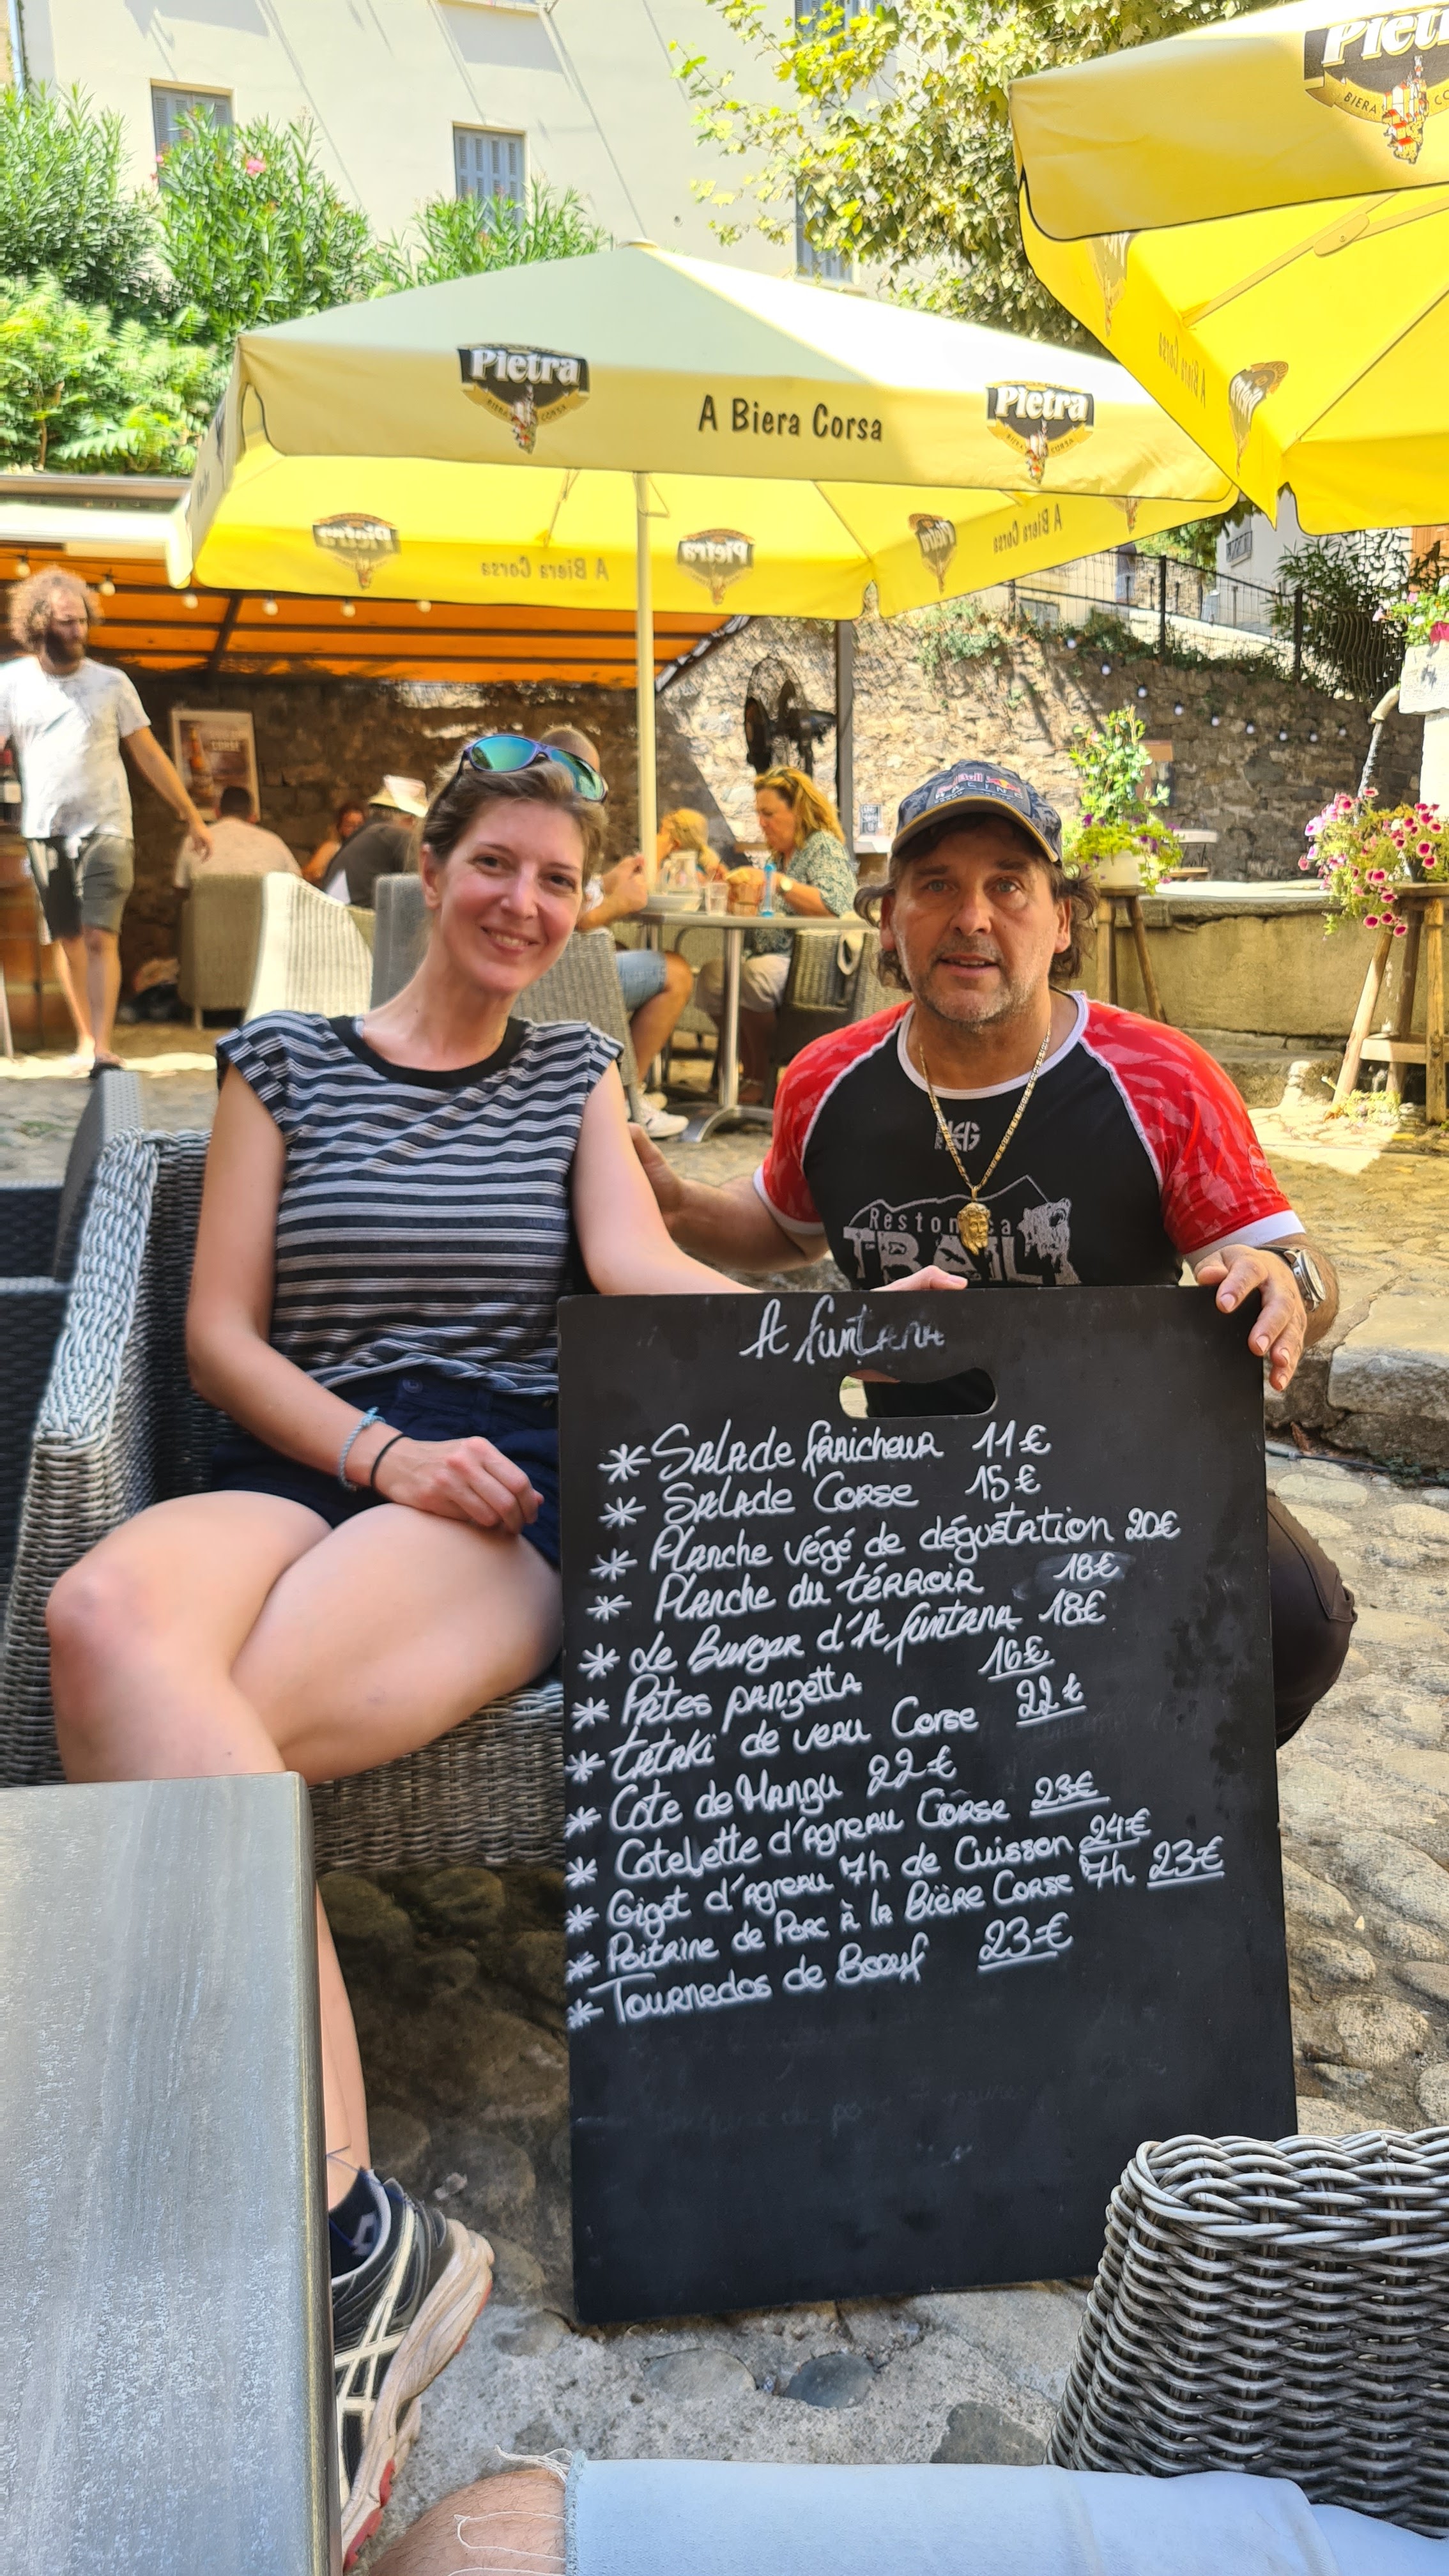 Pietra
BIERA CO
Pietra
BIERA CORSA
A Biera Corsa
Pietra
BIERA CORSA
A Biera Corsa
Pietra
A Biera Corsa
A Biera Corsa
CORSE
Red Bull
RACING
Restonica
TRAIL
A funtana
* Salade fraicheur 11€
* Salade Corse 15€
* Planche végé de dégustation 20€
* Planche du térroir 18€
* Le Burger d'A funtana 18€
* Pâtes panzetta 16€
* tataki de veau Corse 22€
* Cote de Manzu 22€
* Cotelette d'agneau Corse 23€
* Gigot d'agneau 7h de Cuisson 24€
* Poitrine de Porc à la Bière Corse 7h 23€
* Tournedos de Boeuf 23€